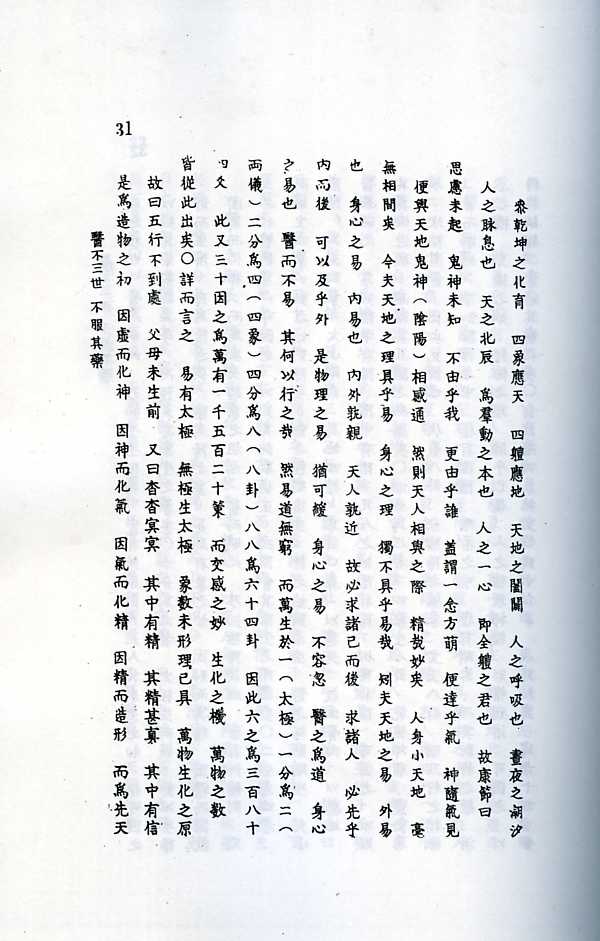 叅乾坤之化育 四象應天 四軆應地 天地之闔闢 人之呼吸也 晝夜之潮汐
人之脉息也 天之北辰 爲羣動之本也 人之一心 即全軆之君也 故康節曰
思慮未起 鬼神未知 不由乎我 更由乎誰 盖謂一念方萌 便達乎氣 神隨氣見
便與天地鬼神(陰陽)相感通 然則天人相與之際 精哉妙矣 人身小天地 毫
無相間矣 今夫天地之理具乎易 身心之理 獨不具乎易哉 矧夫天地之易 外易
也 身心之易 內易也 內外孰親 天人孰近 故必求諸己而後 求諸人 必先乎
內而後 可以及乎外 是物理之易 猶可緩 身心之易 不容忽 醫之爲道 身心
之易也 醫而不易 其何以行之哉 然易道無窮 而萬生於一(太極)一分爲二(
両儀)二分爲四(四象)四分爲八(八卦)八八爲六十四卦 因此六之爲三百八十
四爻 此又三十因之爲萬有一千五百二十策 而交感之妙 生化之機 萬物之數
皆從此出矣○詳而言之 易有太極 無極生太極 象數未形理已具 萬物生化之原
故曰五行不到處 父母未生前 又曰杳杳冥冥 其中有精 其精甚眞 其中有信
是爲造物之初 因虛而化神 因神而化氣 因氣而化精 因精而造形 而爲先天
醫不三世 不服其藥
31